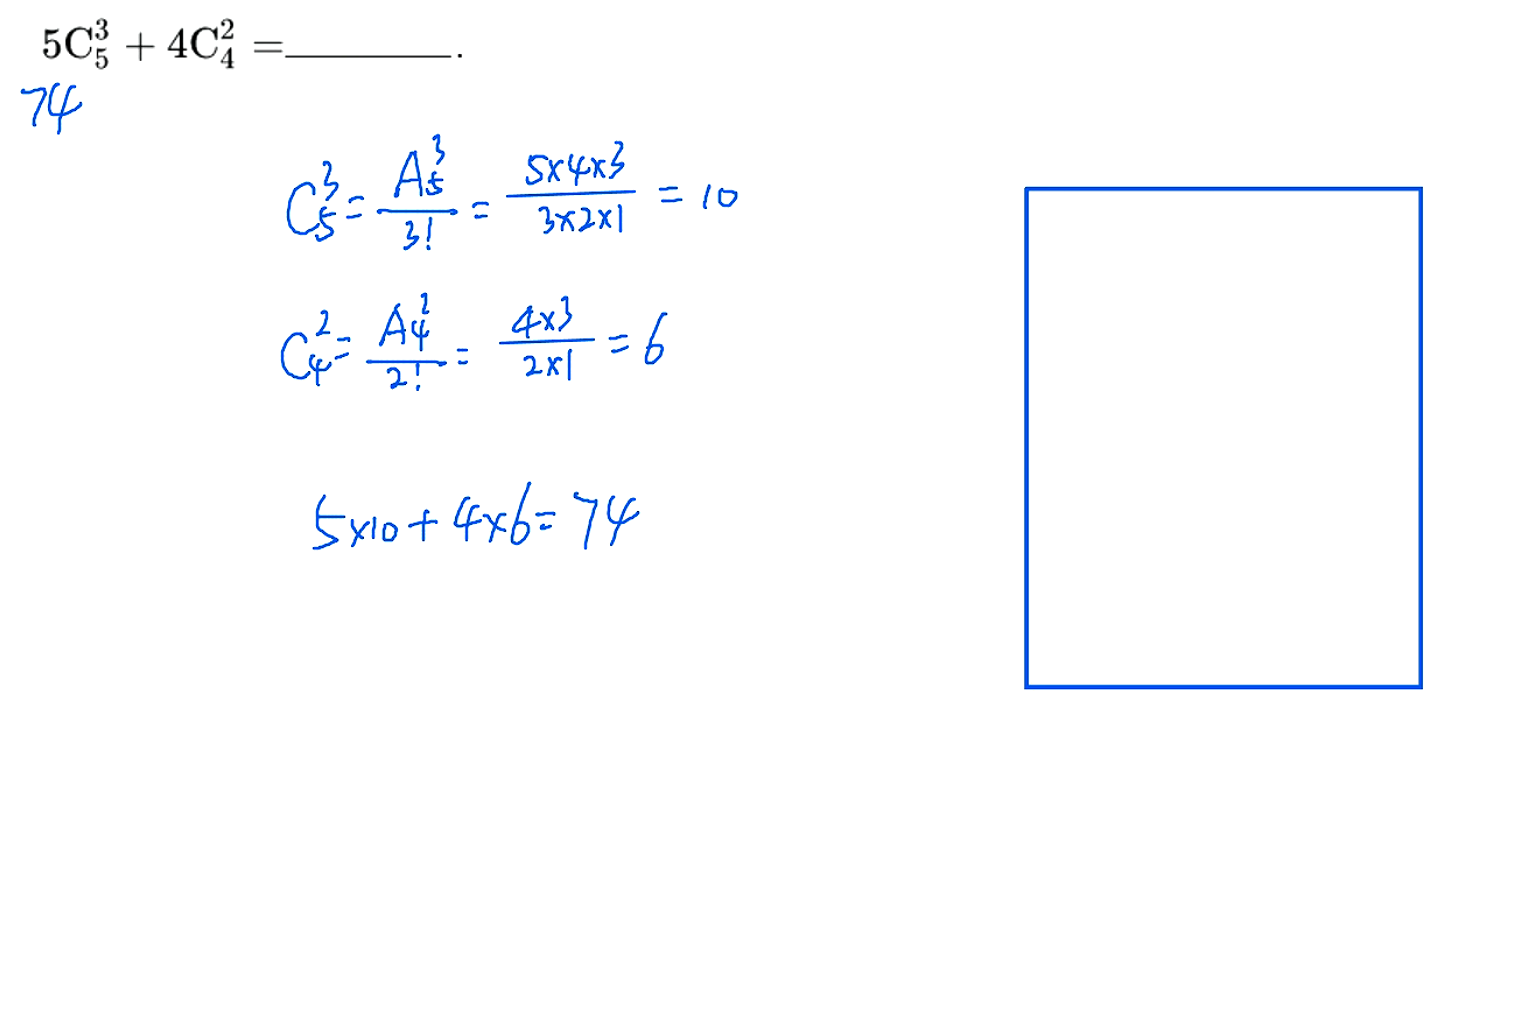 5C₅³ + 4C₄² =________.
74
C₅³ = A₅³/3! = (5×4×3)/(3×2×1) = 10
C₄² = A₄²/2! = (4×3)/(2×1) = 6
5×10+4×6=74